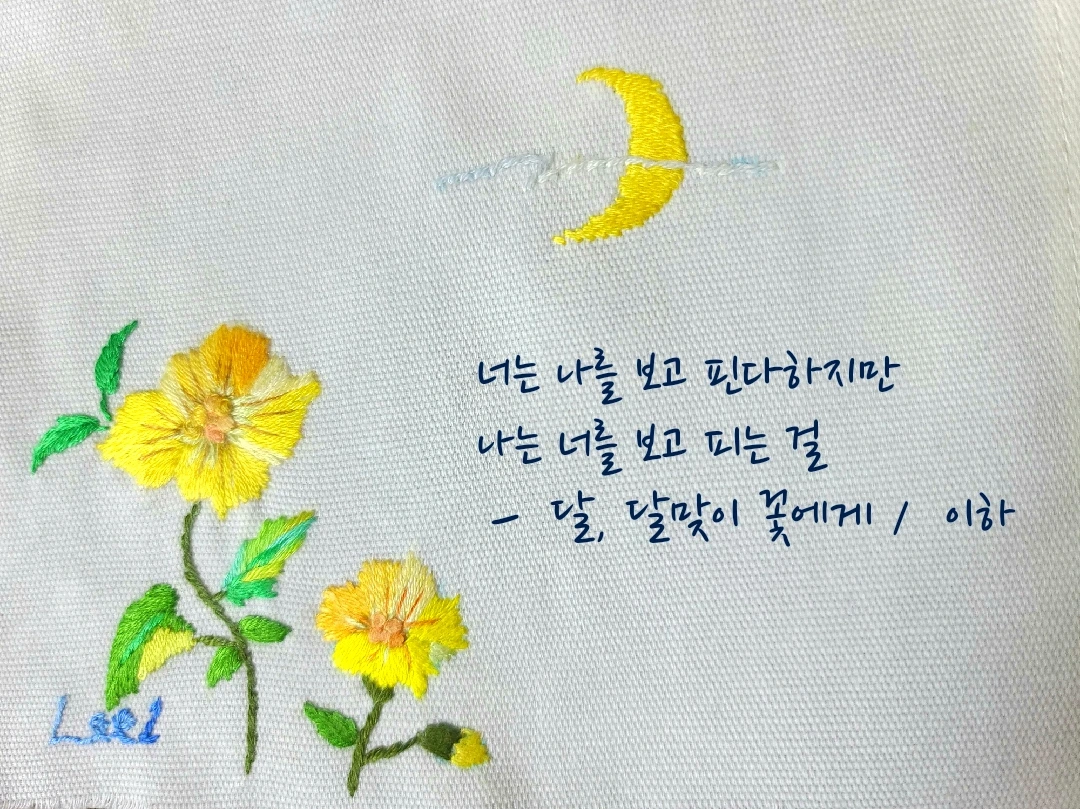 너는 나를 보고 핀다하지만
나는 너를 보고 피는 걸
- 달, 달맞이 꽃에게 / 이하
Leel